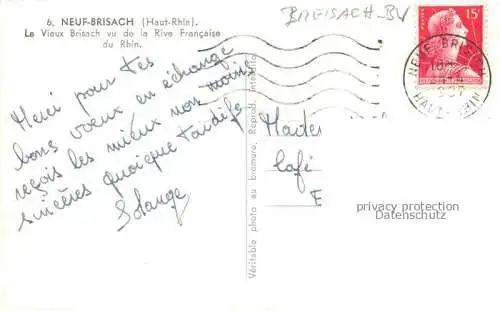 6. NEUF-BRISACH (Haut-Rhin).
Le Vieux Brisach vu de la Rive Française
du Rhin.
BREISACH-BW
15F
NEUF-BRISACH
HAUT-RHIN
Merci pour tes
bons voeux en échange
reçois les mieux non moins
sincères quoique tardifs
Solange
Véritable photo au bromure, Reprod. Interdite
Café
privacy protection
Datenschutz